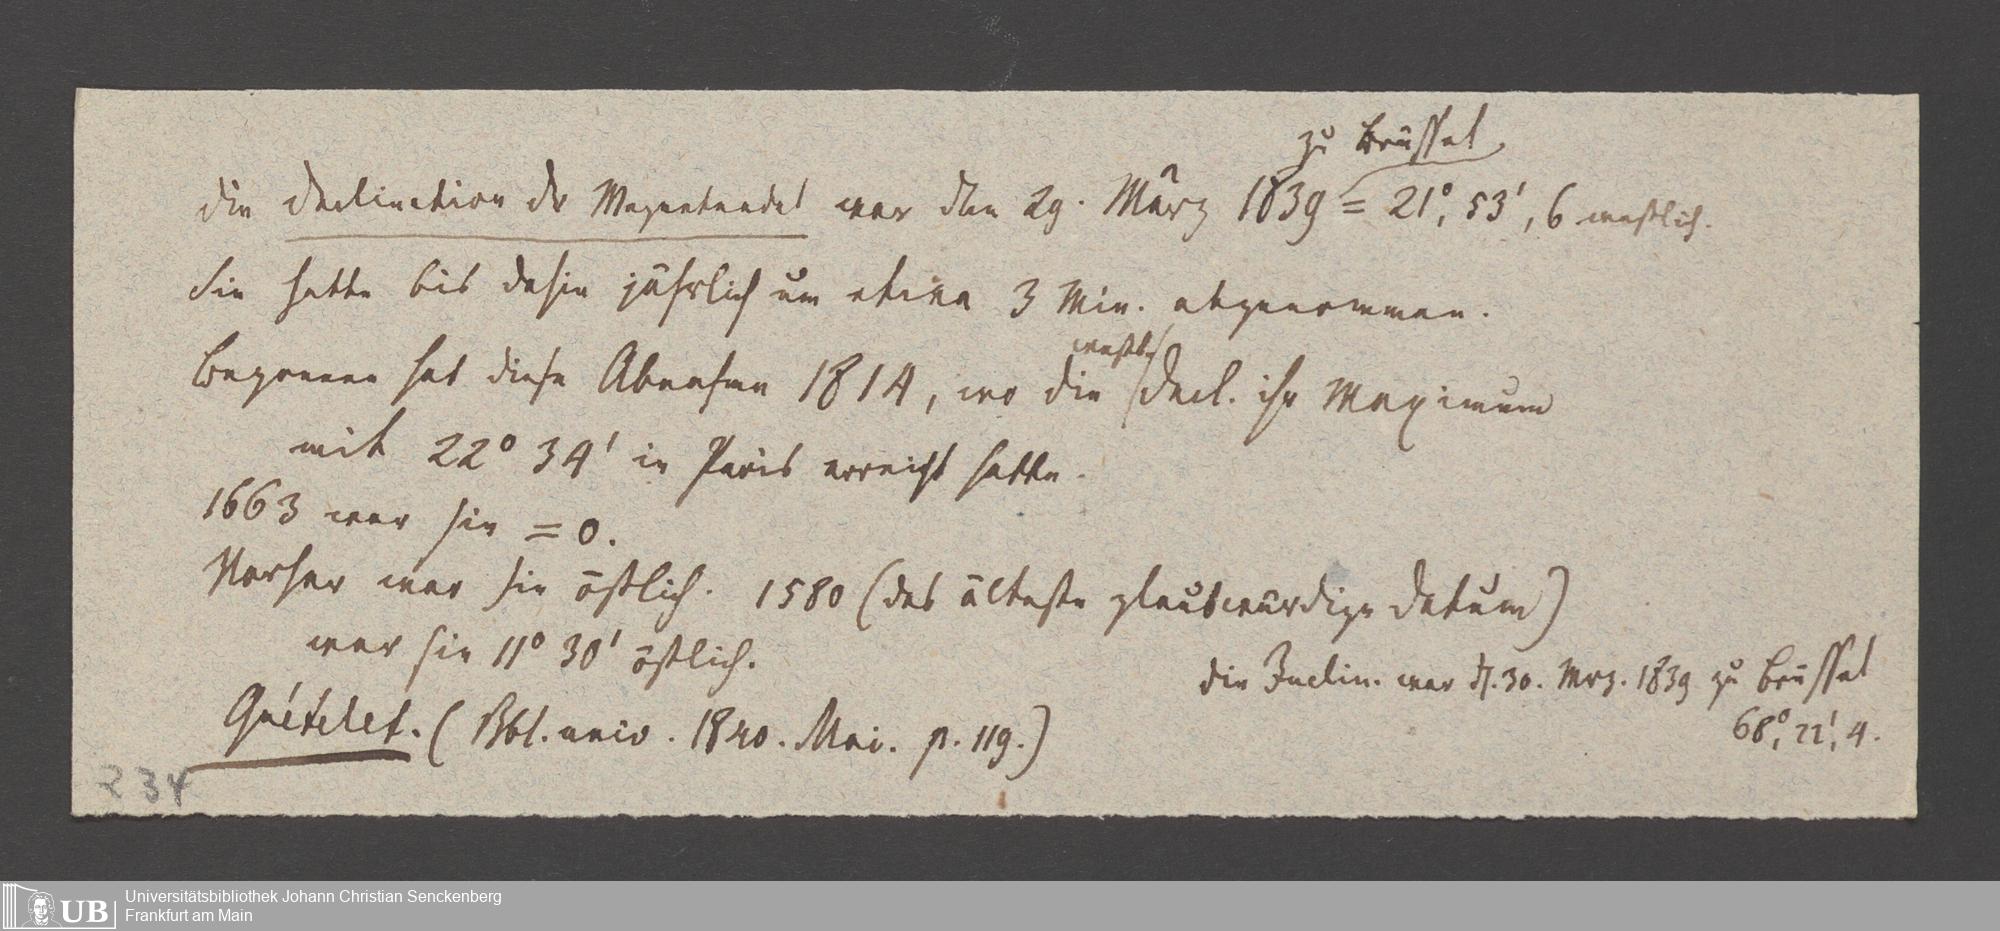 zu Brüssel
die Declination der Magnetnadel war den 29. März 1839 = 21°, 53', 6 westlich.
Sie hatte bis dahin jährlich um etwa 3 Min. abgenommen.
westl.
Begonnen hat diese Abnahme 1814, wo die Decl. ihr Maximum
mit 22° 34' in Paris erreicht hatte.
1663 war sie = 0.
Vorher war sie östlich. 1580 (das älteste glaubwürdige Datum)
war sie 11° 30' östlich.
die Inclin. war d. 30. Mrz. 1839 zu Brüssel
68°, 22', 4.
Quételet. (Bbl. univ. 1840. Mai. p. 119.)
234
UB
Universitätsbibliothek Johann Christian Senckenberg
Frankfurt am Main